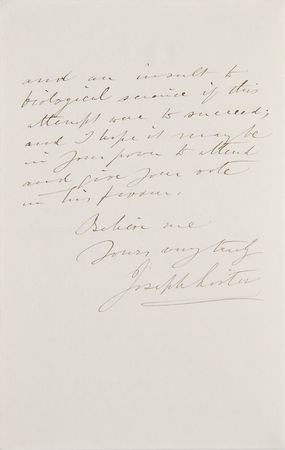 and an insult to
biological science if this
attempt were to succeed;
and I hope it may be
in your power to attend
and give your vote
in his favour.
Believe me
Yours very truly
Joseph Lister